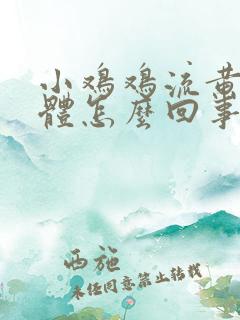 小鸡鸡流黄
體怎麼回事
西施
未经同意禁止转载